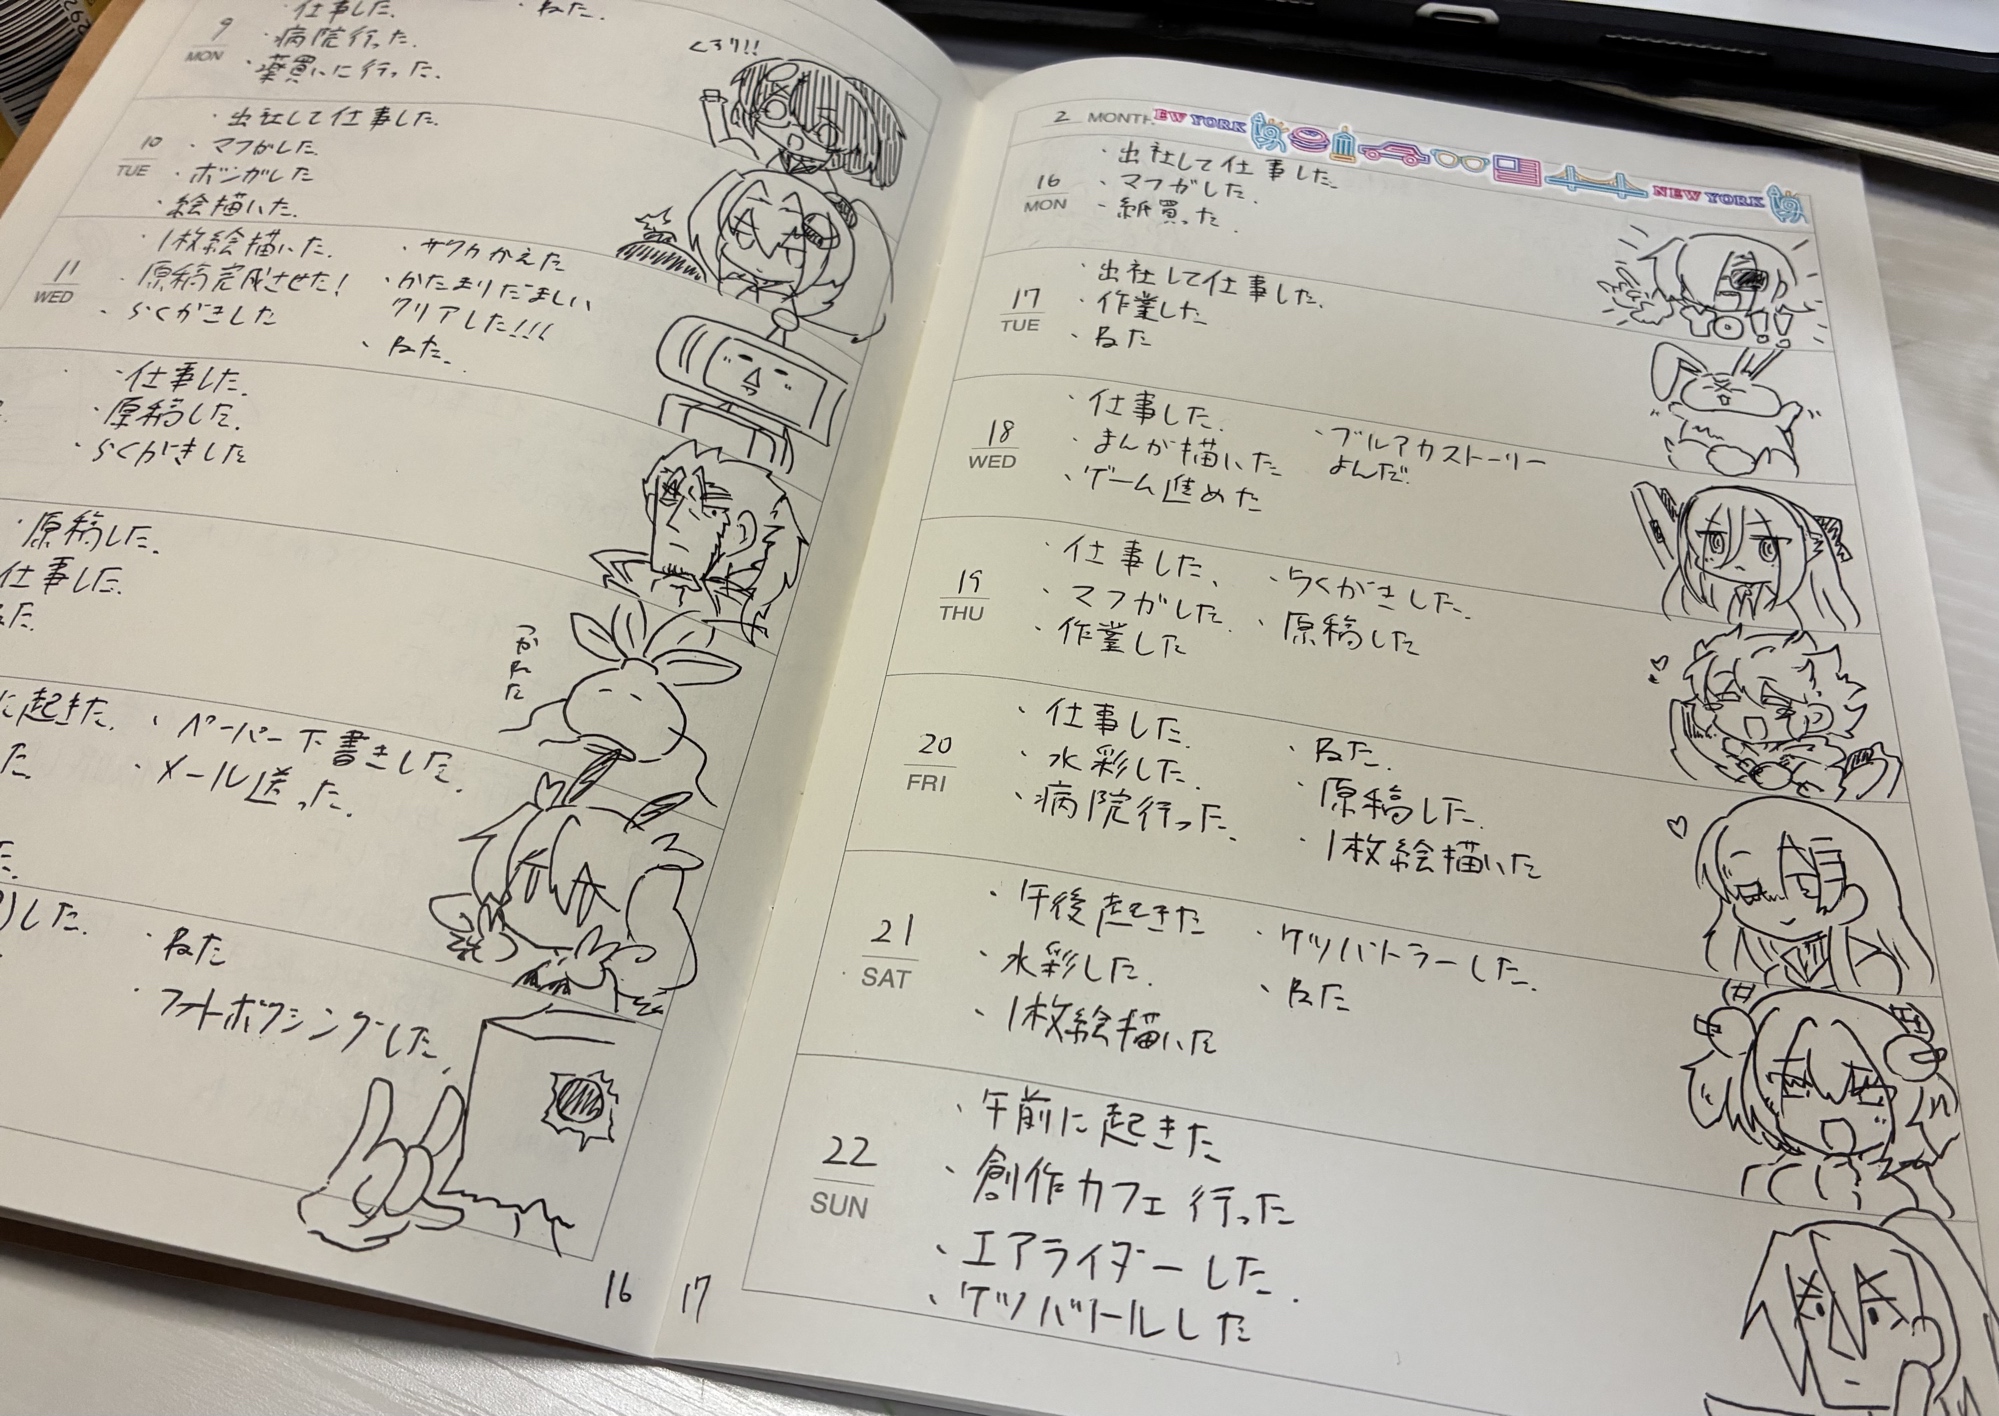 9
MON
・仕事した.
・病院行った.
・薬買いに行った.
・ねた.
くろり!!
10
TUE
・出社して仕事した.
・マフがした.
・ボンガした
・絵描いた.
11
WED
・1枚絵描いた.
・原稿完成させた!
・らくがきした
・かたまりだましい
クリアした!!!
・ねた.
・仕事した.
・原稿した.
・らくがきした
・原稿した.
仕事した.
つかれた
に起きた.
・ペーパー下書きした.
・メール送った.
した.
・ねた
・フォトボクシングした.
16
17
2 MONTH
EW YORK
NEW YORK
16
MON
・出社して仕事した.
・マフがした.
・紙買った
17
TUE
・出社して仕事した.
・作業した
・ねた
18
WED
・仕事した.
・まんが描いた
・ゲーム進めた
・ブルアカストーリー
よんだ.
19
THU
・仕事した、
・マフがした.
・作業した
・らくがきした.
・原稿した
20
FRI
・仕事した.
・水彩した.
・病院行った.
・ねた.
・原稿した.
・1枚絵描いた
21
SAT
・午後起きた
・水彩した.
・1枚絵描いた
・ケツバトラーした.
・ねた
22
SUN
・午前に起きた
・創作カフェ行った
・エアライダーした.
・ケツバトルした